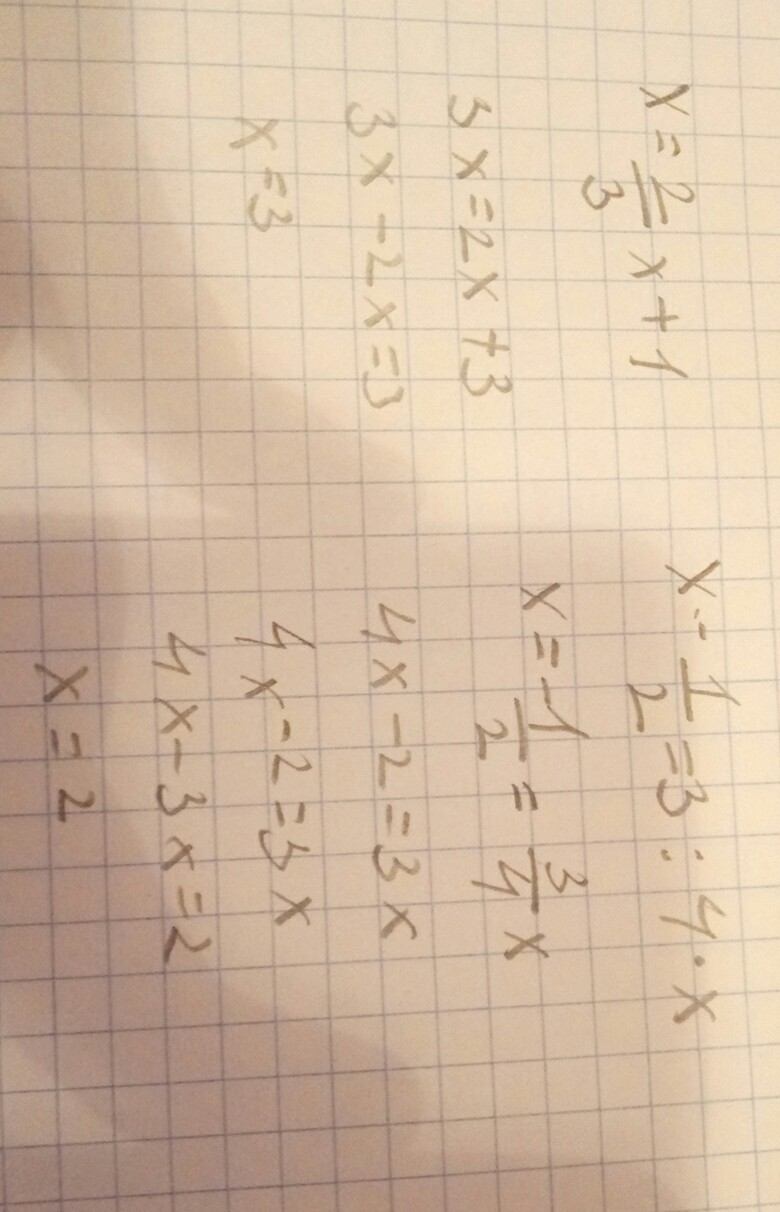 x = 2/3 x + 1
3x = 2x + 3
3x - 2x = 3
x = 3
x - 1/2 = 3 : 4 · x
x = - 1/2 = 3/4 x
4x - 2 = 3x
4x - 2 = 3x
4x - 3x = 2
x = 2